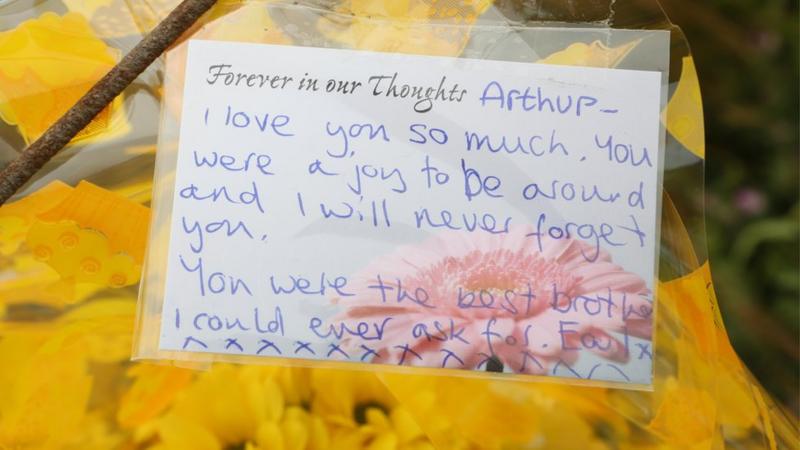 Forever in our Thoughts Arthur-
I love you so much. You
were a joy to be around
and I will never forget
you.
You were the best brothe
I could ever ask for. x
x x x x x x x x x x x x